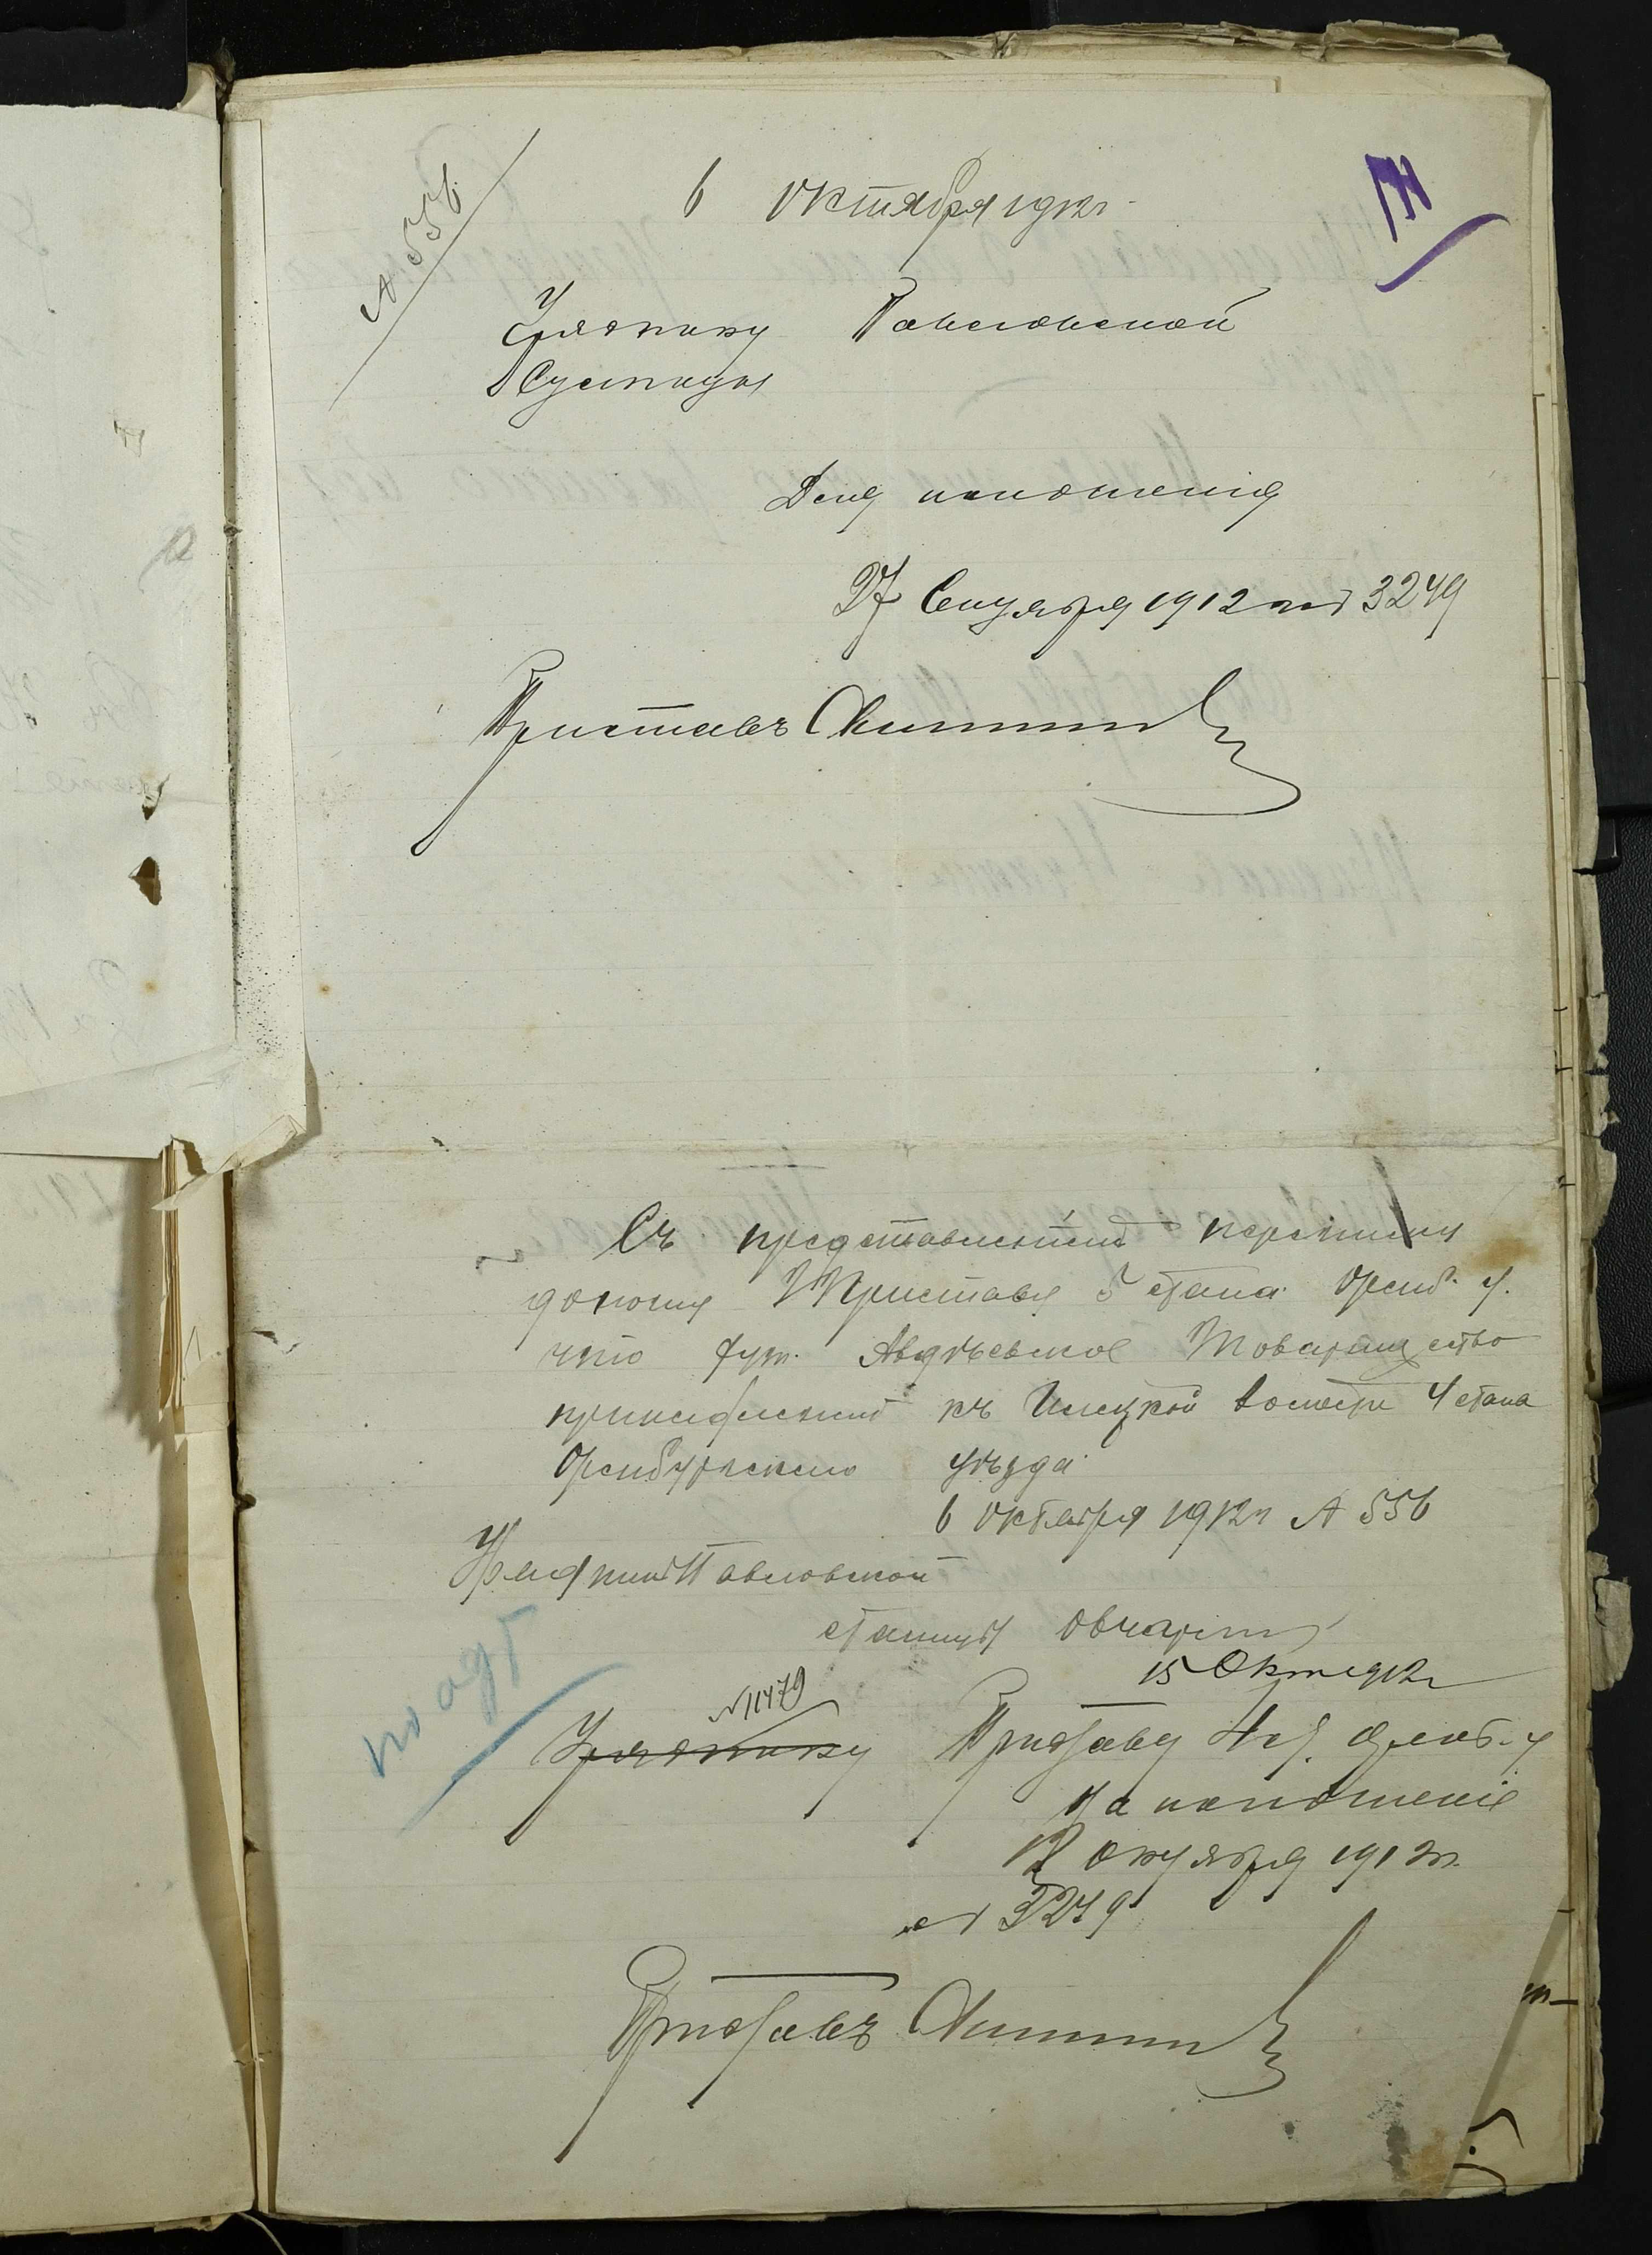 № 556
6 Октября 1912 г.
Уряднику Павловской
станицы
Для исполненія
27 Сентября 1912 г. № 3249
Приставъ
Съ представленіемъ переписки
доношу Приставу 5 стана Оренб. у.
что хут. Авдѣевское Товарищество
къ Илецкой волости 4 стана
Оренбургскаго уѣзда
6 октября 1912 г. № 556
Урядникъ Павловской
станицы
15 Окт 1912 г.
№ 11479
Уряднику Приставу 4 ст. Оренб. у
На исполненіе
12 октября 1912 г.
№ 3249
Приставъ